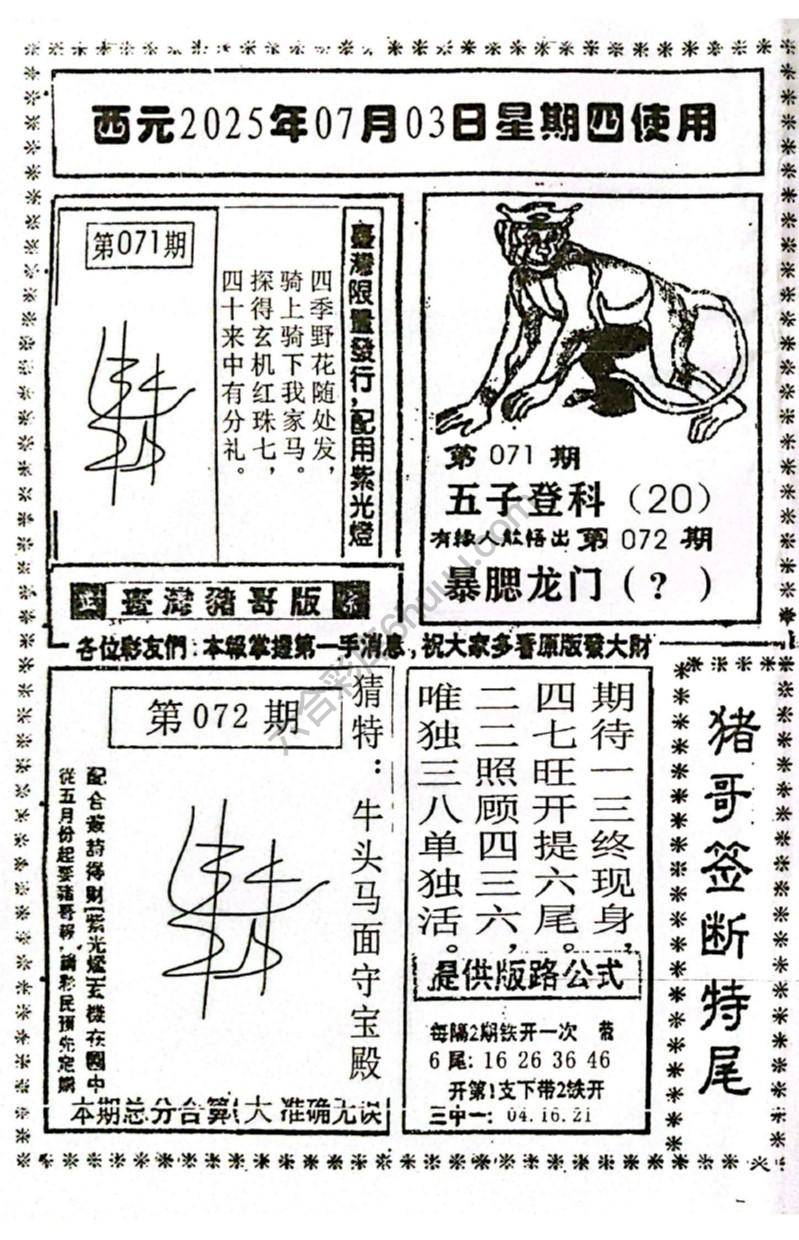 西元2025年07月03日星期四使用
第071期
臺灣限量發行，配用紫光燈
四季野花随处发，
骑上骑下我家马。
探得玄机红珠七，
四十来中有分礼。
臺灣豬哥版
第071期
五子登科（20）
第072期
暴腮龙门（？）
各位彩友們：本報掌握第一手消息，祝大家多看原版發大財
第072期
猜特：牛头马面守宝殿
從五月份起要豬哥報，請彩民預先定購
本期总分合算大 准确无误
期待一三终现身，
四七旺开提六尾。
二二照顾四三六，
唯独三八单独活。
提供版路公式
每隔2期铁开一次 带
6尾：16 26 36 46
开第1支下带2铁开
三中一：04.16.21
猪哥签断特尾
六合彩库6huuu.com